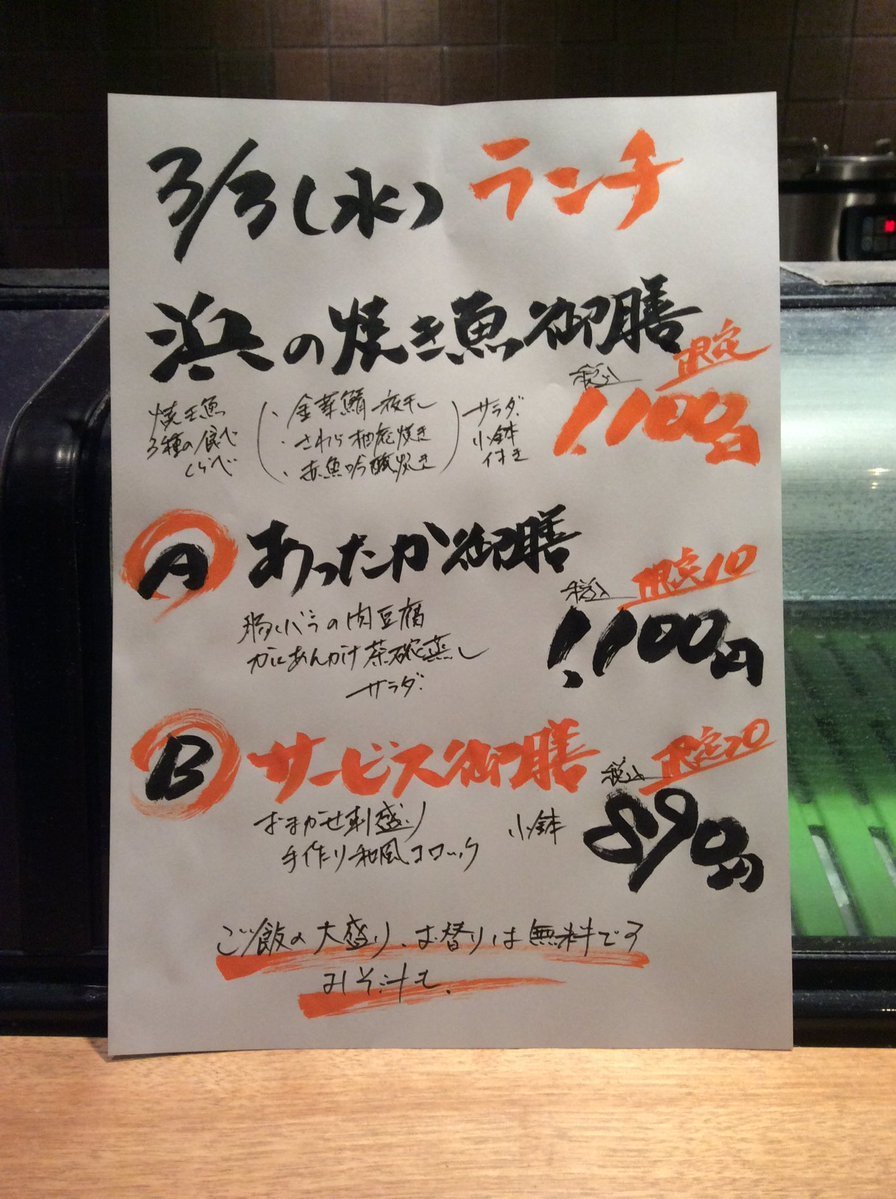 3/3(水) ランチ
浜の焼き魚御膳
限定
税込
1,100円
焼き魚
3種の食べ
くらべ
・金華鯖一夜干し
・さわら柚庵焼き
・赤魚吟醸焼き
サラダ
小鉢
付き
A あったか御膳
限定10
税込
1,100円
豚バラの肉豆腐
かにあんかけ茶碗蒸し
サラダ
B サービス御膳
限定20
税込
890円
おまかせ刺盛り 小鉢
手作り和風コロッケ
ご飯の大盛り、お替りは無料です
みそ汁も、